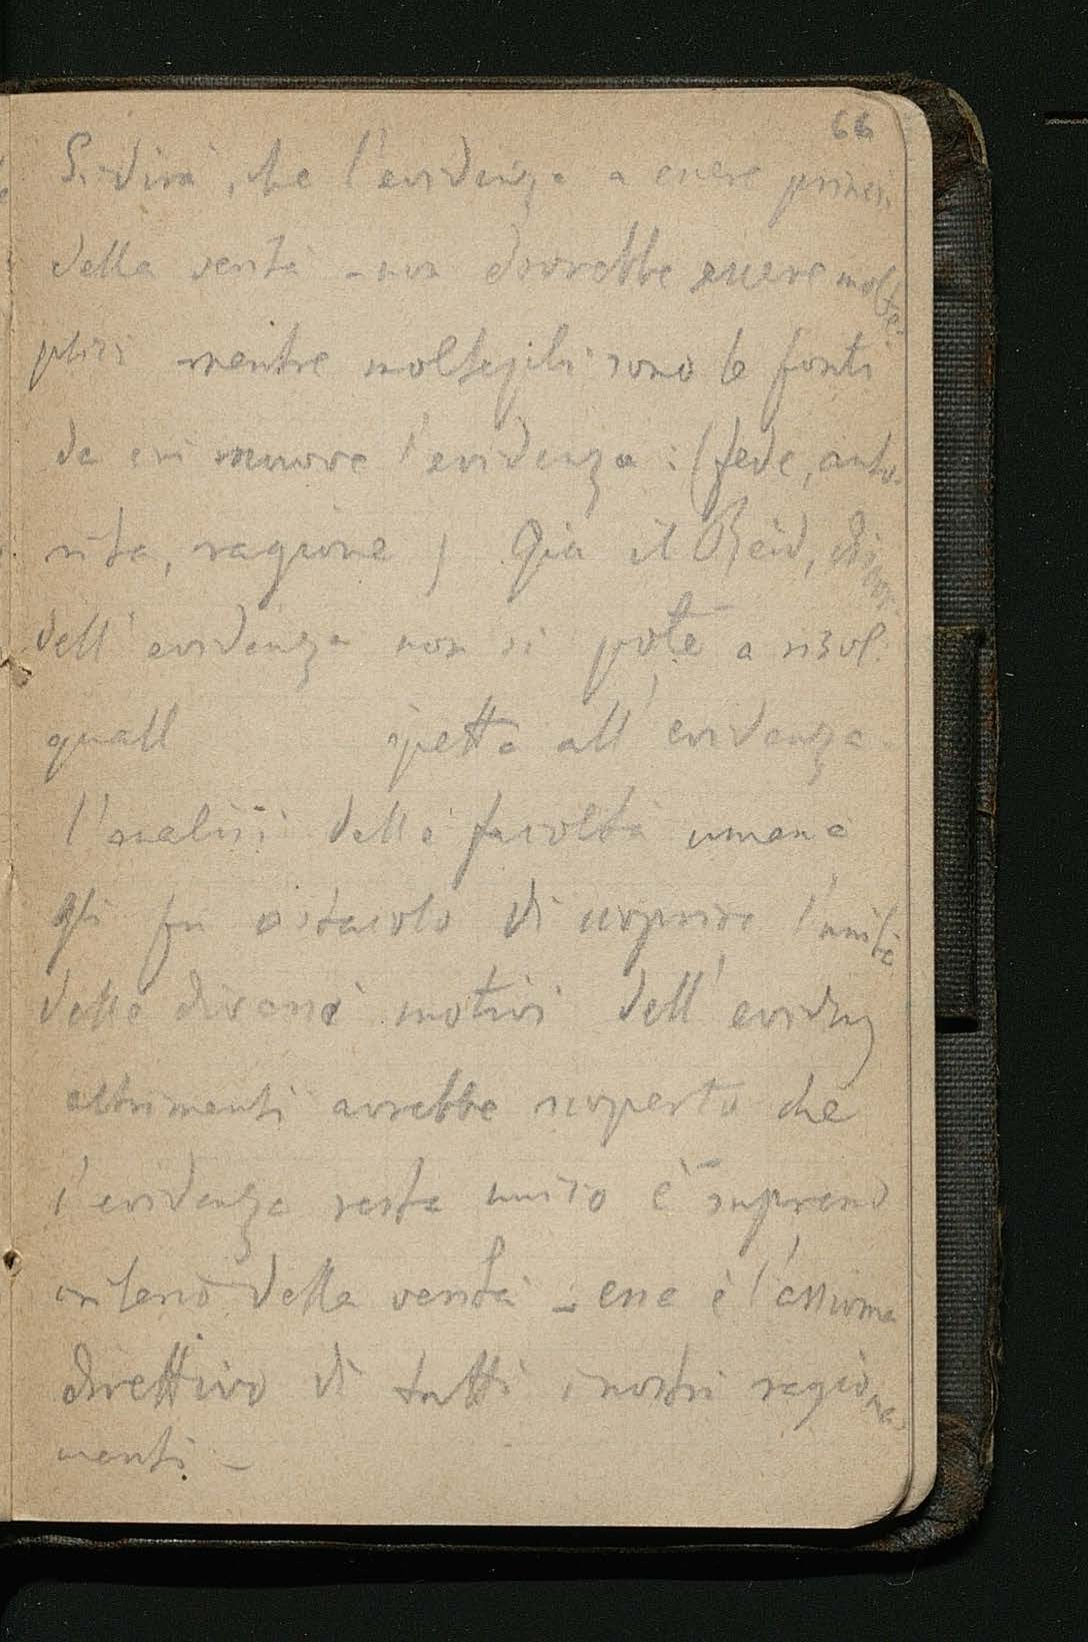 66
Si dirà, che l'evidenza a essere princi.
della verità - non dovrebbe essere molte-
plici mentre molteplici sono le fonti
da cui muove l'evidenza: (fede, auto-
rità, ragione) Già il Reid,
dell'evidenza non si potè a risol.
quall petto all'evidenza.
l'analisi delle facoltà umane
gli fu ostacolo di scoprire l'unità
delle diverse motivi dell'evidenz
altrimenti avrebbe scoperto che
l'evidenza resta unico e supremo
criterio della verità - essa è l'assioma
direttivo di tutti i nostri ragiona-
menti -